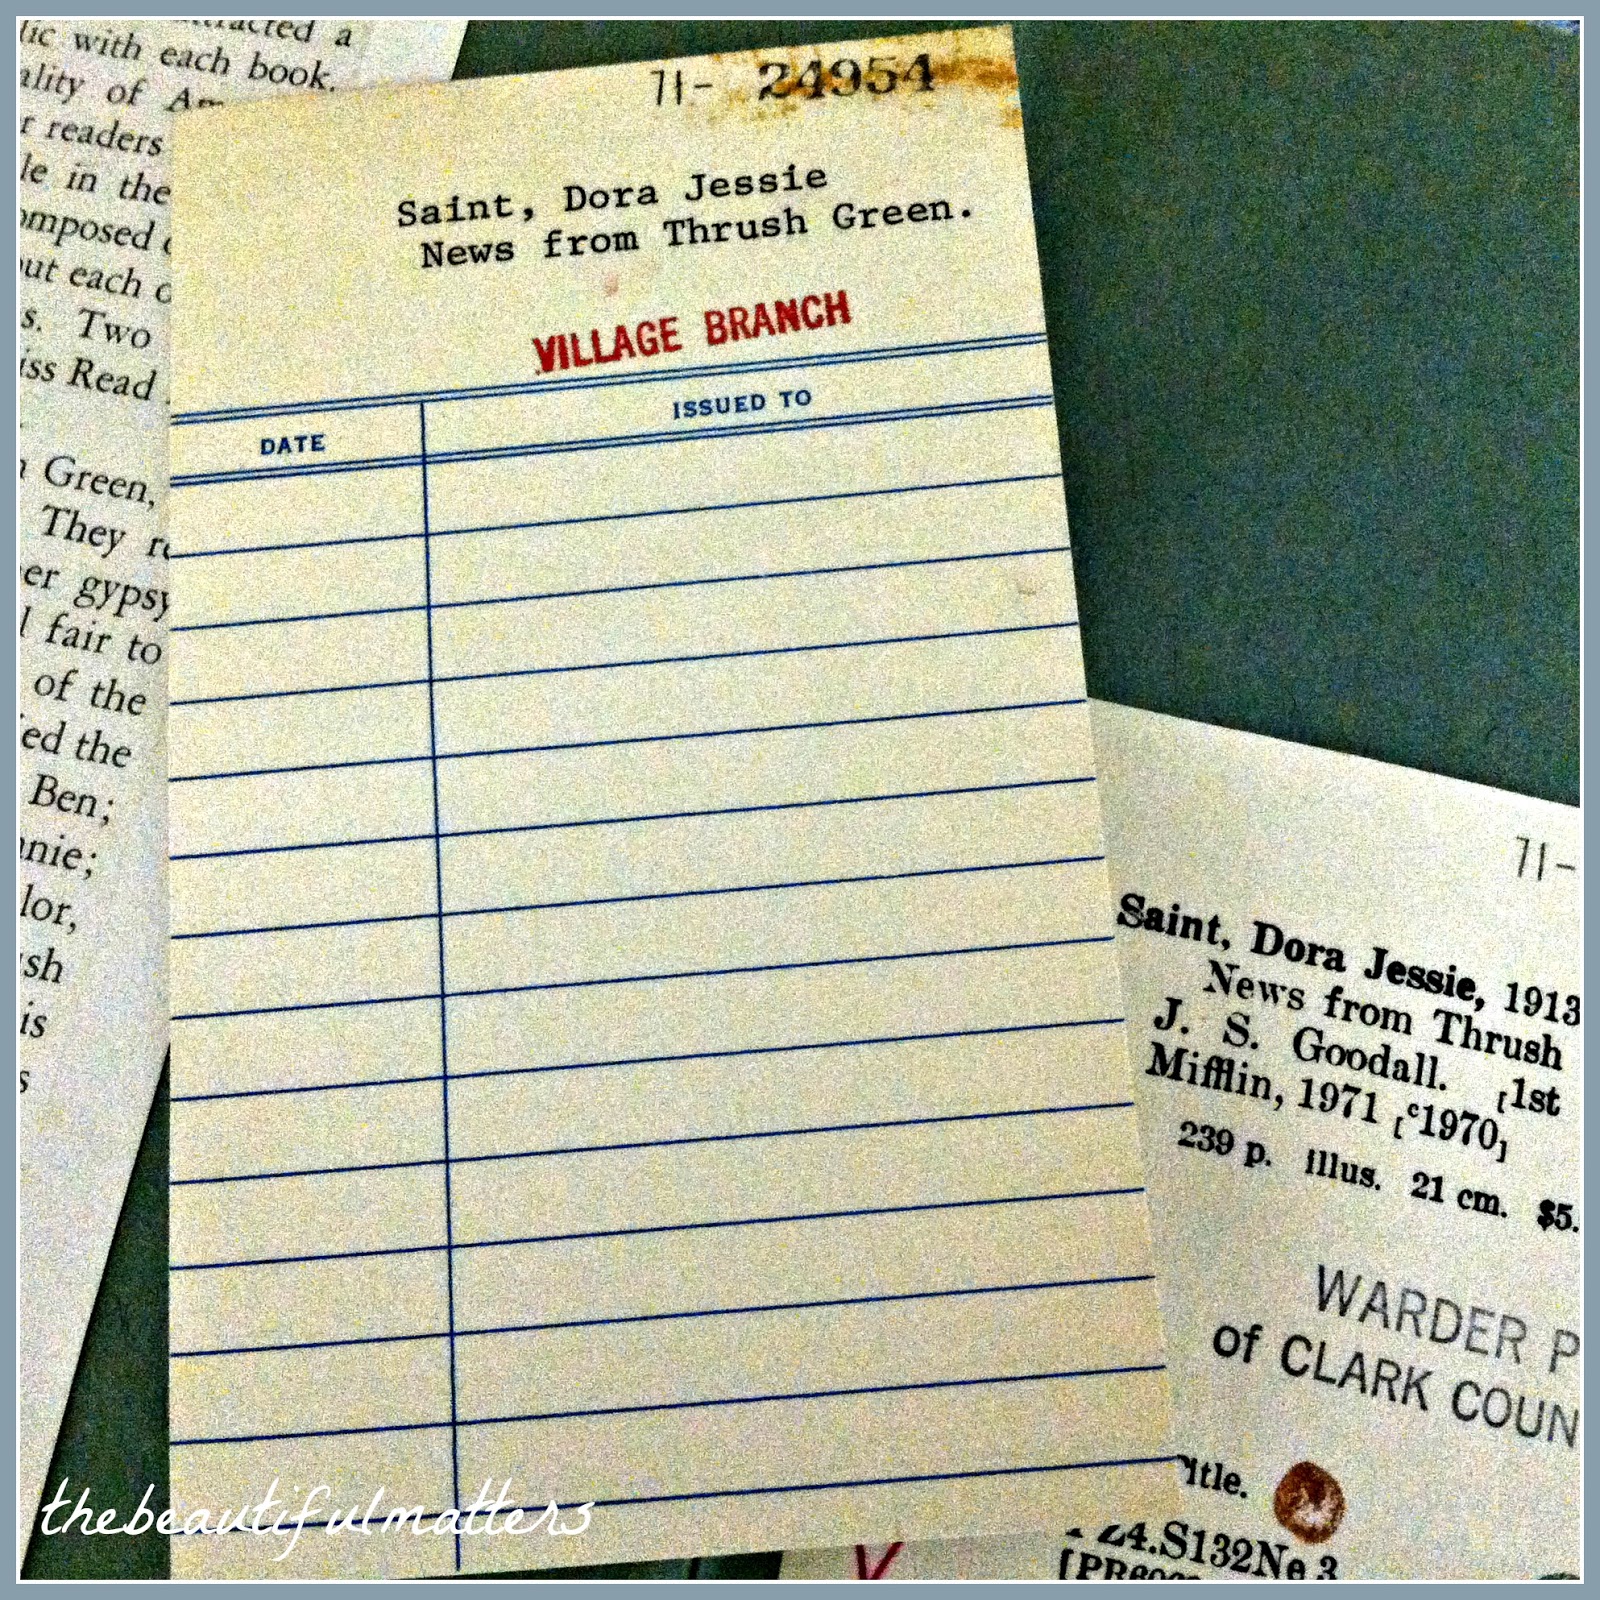 acted a
lic with each book.
ality of Am
r readers
le in the
omposed
ut each
s. Two
iss Read
Green,
They re
er gypsy
l fair to
of the
ed the
Ben;
nnie;
lor,
sh
is
s
71- 24954
Saint, Dora Jessie
News from Thrush Green.
VILLAGE BRANCH
DATE ISSUED TO
71-
Saint, Dora Jessie, 1913
News from Thrush
J. S. Goodall. [1st
Mifflin, 1971 [c1970]
239 p. illus. 21 cm. $5.
WARDER P
of CLARK COUN
itle.
Z4.S132Ne 3
[PR60
thebeautifulmatters